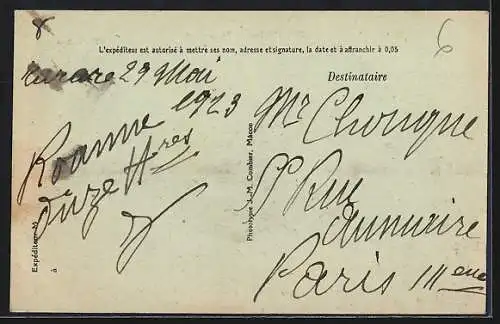 L'expéditeur est autorisé à mettre ses nom, adresse et signature, la date et à affranchir à 0,05
6
Tarare 29 Mai
1923
Roanne
onze Hres
Destinataire
Mr Chongne
5 Rue
aumaire
Paris IIIeme
Expéditeur M
à
Phototypie J.-M. Combier, Mâcon